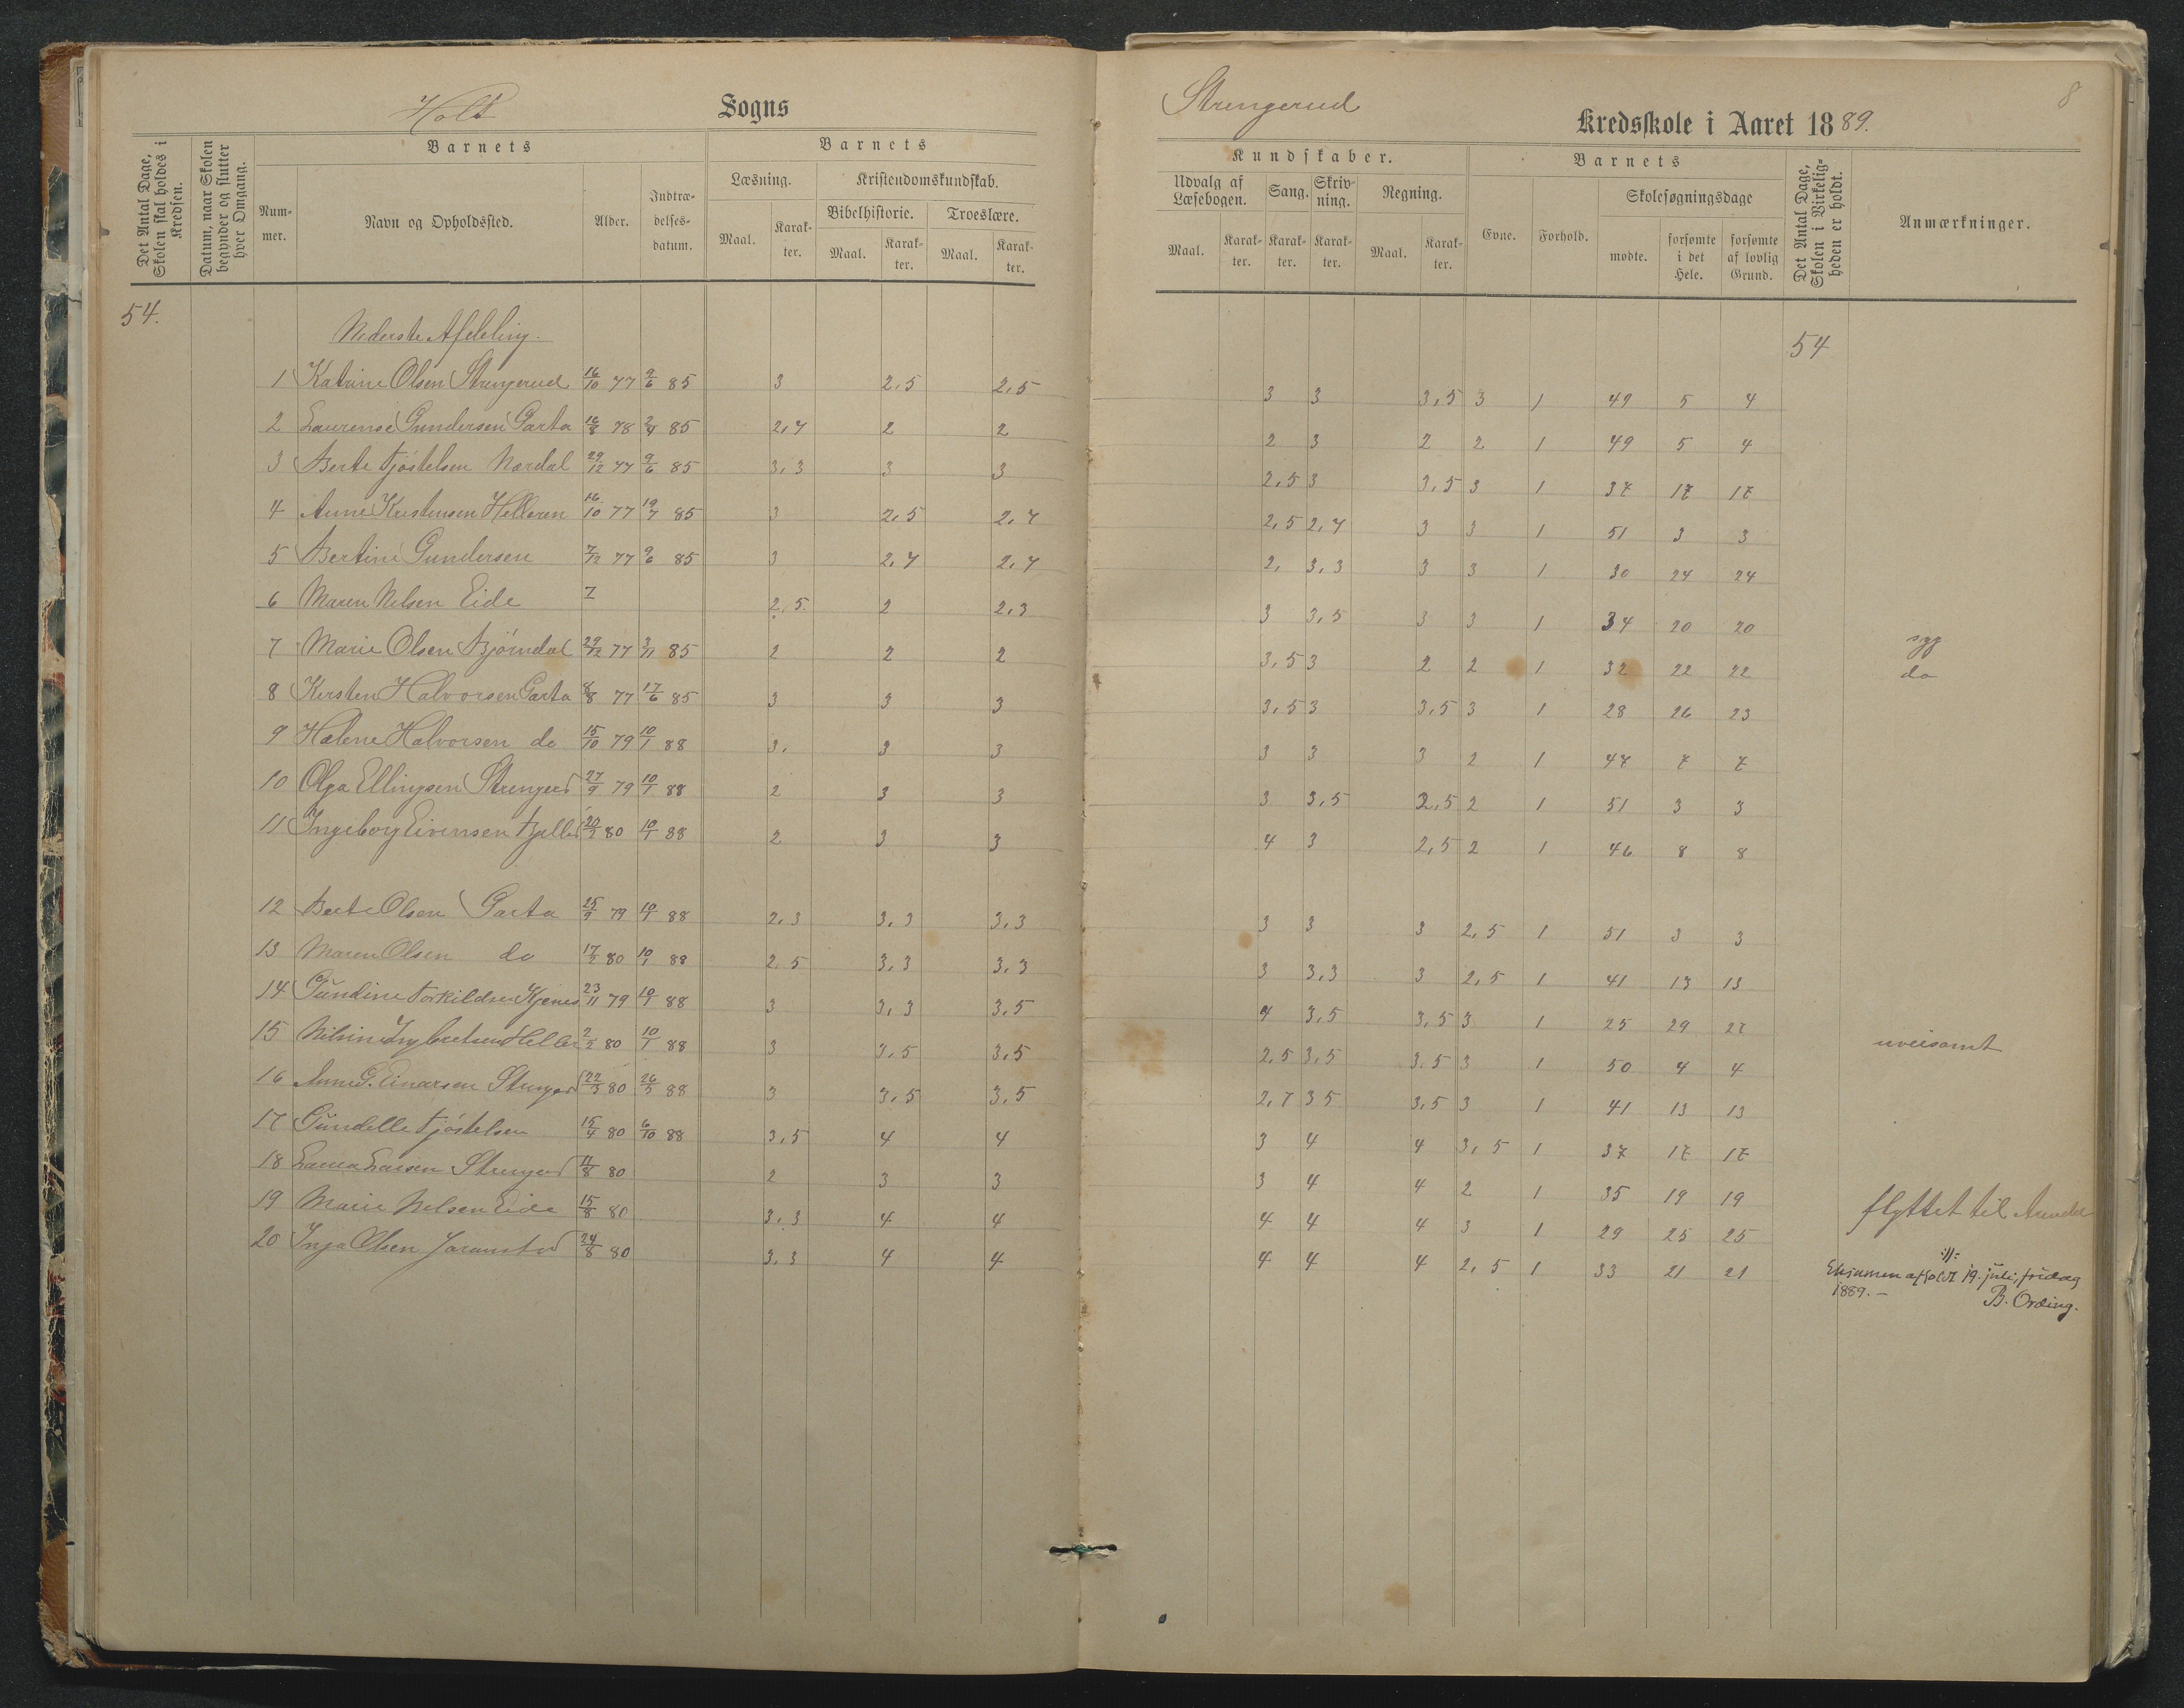 Holt Sogns
Strengerud Kredsskole i Aaret 1889.
8
Det Antal Dage, Skolen skal holdes i Kredsen.
Datum, naar Skolen begynder og slutter hver Omgang.
Barnets
Nummer.
Navn og Opholdssted.
Alder.
Indtrædelsesdatum.
Barnets
Læsning.
Maal.
Karakter.
Kristendomskundskab.
Bibelhistorie.
Maal.
Karakter.
Troeslære.
Maal.
Karakter.
Kundskaber.
Udvalg af Læsebogen.
Maal.
Karakter.
Sang.
Karakter.
Skrivning.
Karakter.
Regning.
Maal.
Karakter.
Barnets
Evne.
Forhold.
Skolesøgningsdage
mødte.
forsømte i det Hele.
forsømte af lovlig Grund.
Det Antal Dage, Skolen i Virkeligheden er holdt.
Anmærkninger.
54.
Nederste Afdeling.
54
1 Katrine Olsen Strengerud 16/10 77 9/6 85 3 2,5 2,5 3 3 3,5 3 1 49 5 4
2 Laurense Gundersen Garta 16/8 78 85 2,7 2 2 2 3 2 2 1 49 5 4
3 Berte Tjøstelsen Nærdal 29/12 77 9/6 85 3,3 3 3 2,5 3 3,5 3 1 37 17 17
4 Anne Kristensen Helleren 16/10 77 19/7 85 3 2,5 2,7 2,5 2,7 3 3 1 51 3 3
5 Bertine Gundersen 7/12 77 9/6 85 3 2,7 2,7 2, 3,3 3 3 1 30 24 24
6 Maren Nelsen Eide 2,5 2 2,3 3 3,5 3 3 1 34 20 20 syg
7 Marie Olsen Bjørndal 29/12 77 3/11 85 2 2 2 3,5 3 2 2 1 32 22 22 do
8 Kersten Halvorsen Garta 8/8 77 17/6 85 3 3 3 3,5 3 3,5 3 1 28 26 23
9 Helene Halvorsen do 15/10 79 10/1 88 3, 3 3 3 3 3 2 1 47 7 7
10 Olga Ellingsen Strengerd 27/9 79 10/1 88 2 3 3 3 3,5 2,5 2 1 51 3 3
11 Ingeborg Eivensen 20/2 80 10/1 88 2 3 3 4 3 2,5 2 1 46 8 8
12 Berte Olsen Garta 25/9 79 10/1 88 2,3 3,3 3,3 3 3 3 2,5 1 51 3 3
13 Maren Olsen do 17/2 80 10/1 88 2,5 3,3 3,3 3 3,3 3 2,5 1 41 13 13
14 Gundine Torkildsen Kjenes 23/11 79 10/1 88 3 3,3 3,5 4 3,5 3,5 3 1 25 29 27 uveisomt
15 Nilsine Ingbretsen Heller 2/2 80 10/1 88 3 3,5 3,5 2,5 3,5 3.5 3 1 50 4 4
16 Anne G. Einarsen Strenger 22/3 80 26/3 88 3 3,5 3,5 2,7 3 5 3,5 3 1 41 13 13
17 Gundelle Tjøstelsen 15/4 80 6/10 88 3,5 4 4 3 4 4 3,5 1 37 17 17
18 Laura Larsen Strenger 11/8 80 2 3 3 3 4 4 2 1 35 19 19 flyttet til Arendal
19 Marie Nelsen Eide 15/8 80 3,3 4 4 4 4 4 3 1 29 25 25
20 Inga Olsen Joramstad 24/8 80 3,3 4 4 4 4 4 2,5 1 33 21 21
://:
Eksamen afholdt 19. juli, fredag
1889. –
B. Ording.